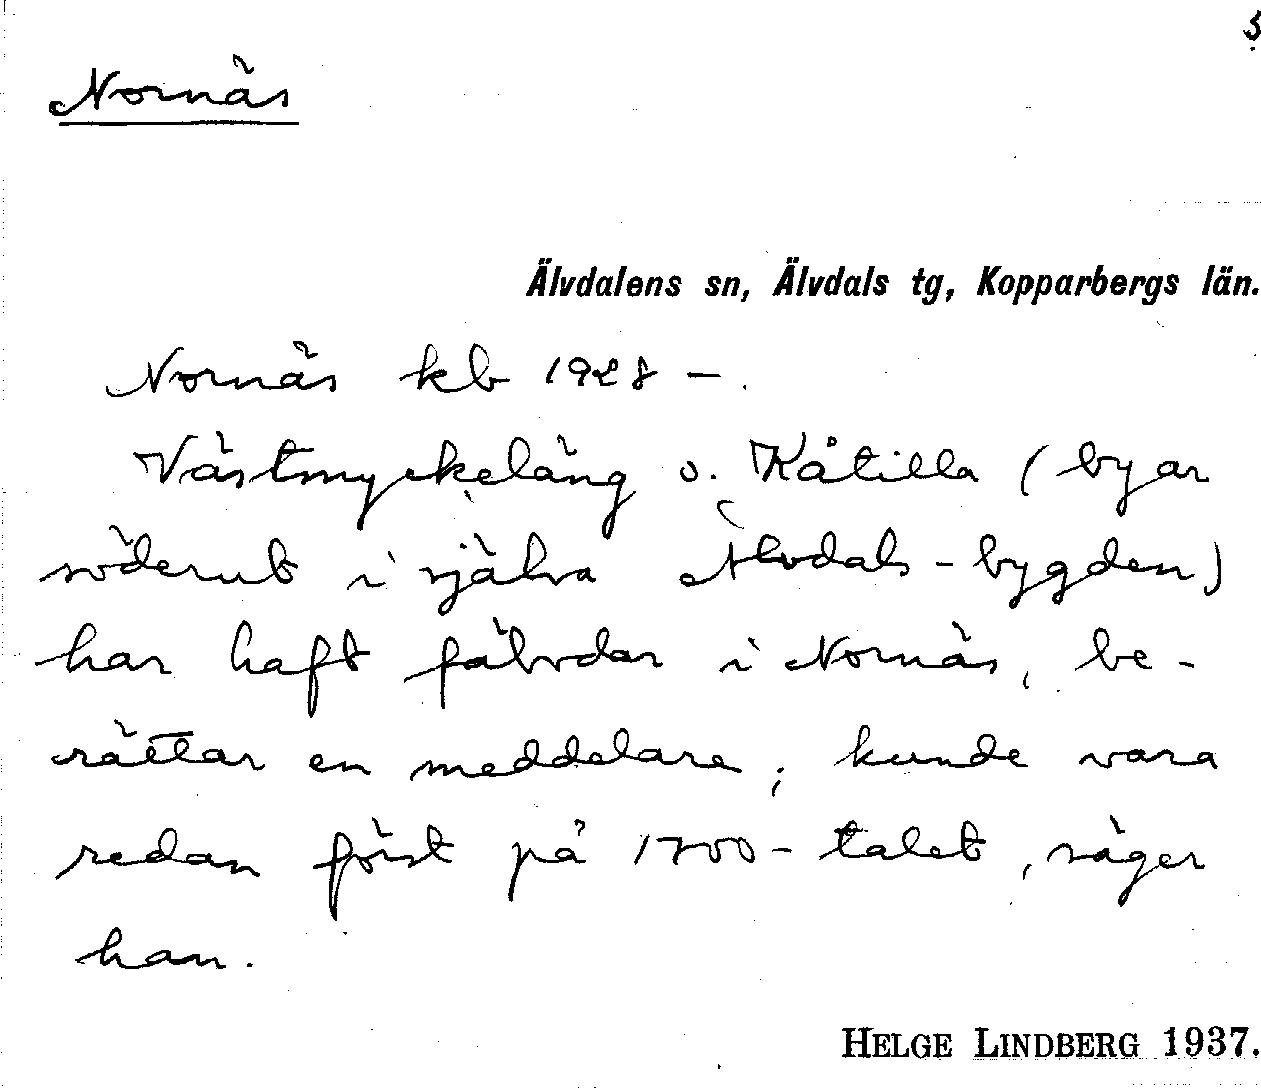 5
Nornäs
Älvdalens sn, Älvdals tg, Kopparbergs län.
Nornäs kb 1928 –.
Västmyckeläng o. Kåtilla (byar
söderut i själva Älvdals-bygden)
har haft fäbodar i Nornäs, be-
rättar en meddelare; kunde vara
redan först på 1700-talet, säger
han.
HELGE LINDBERG 1937.